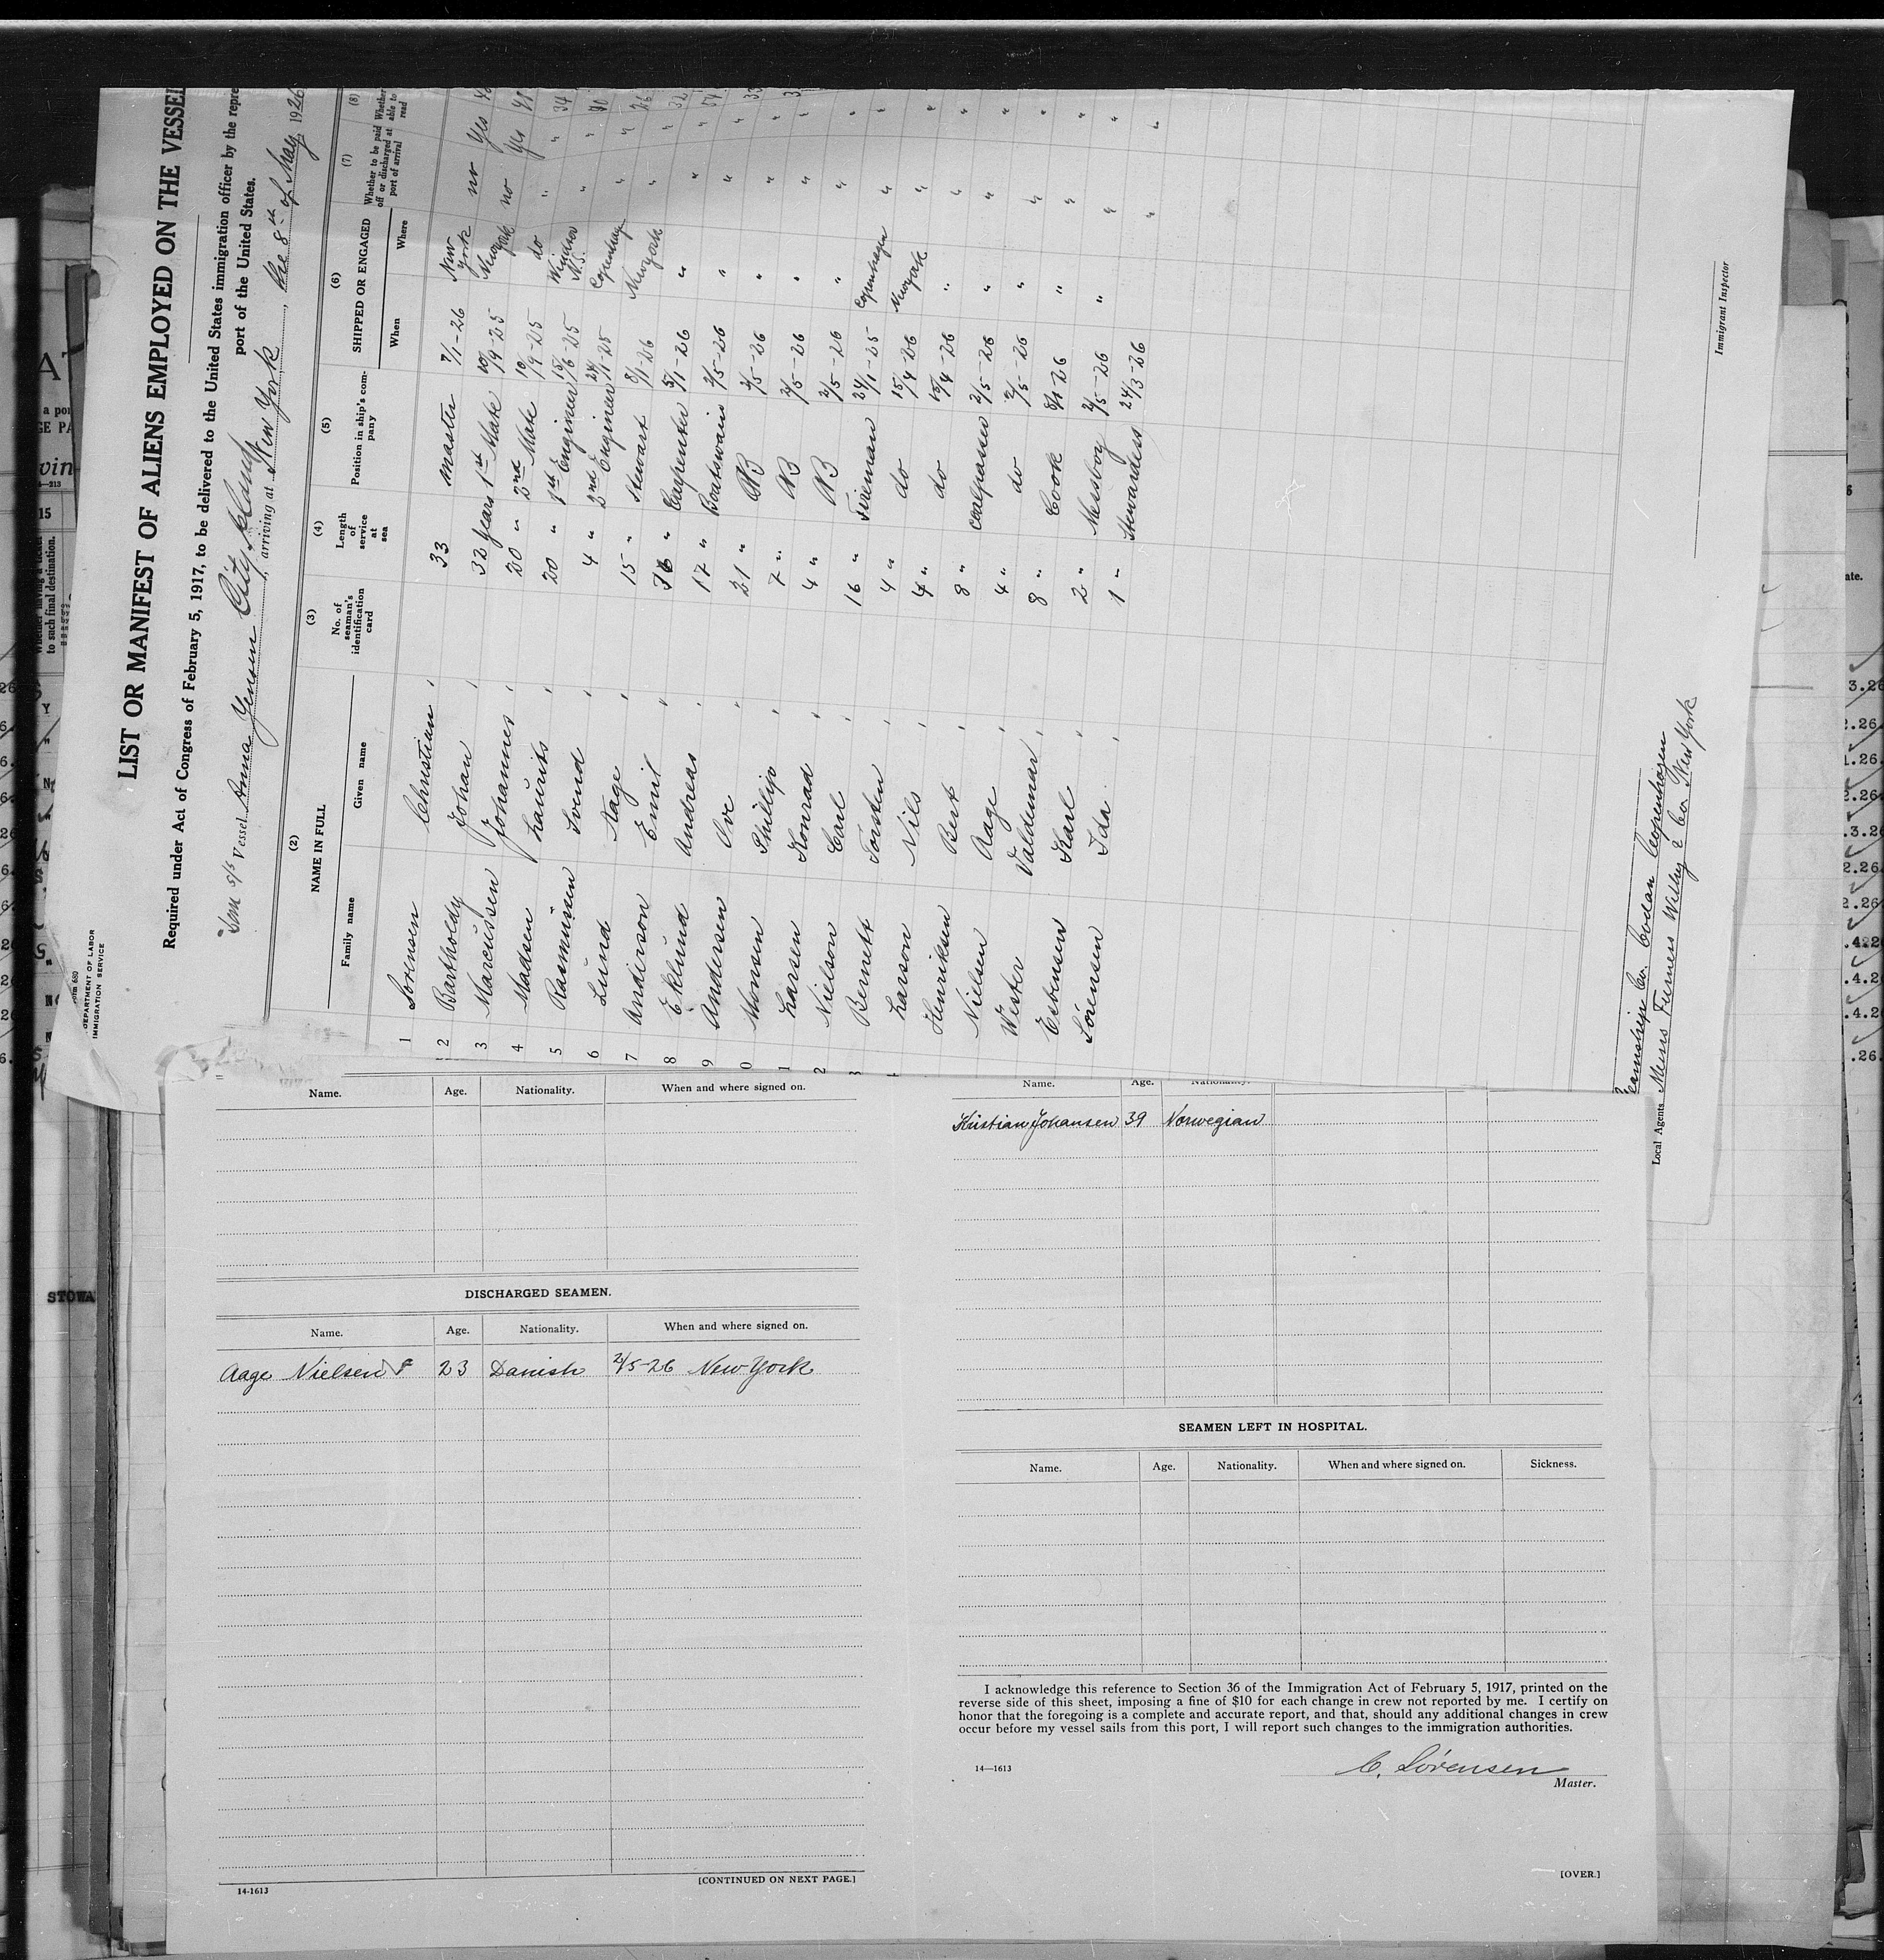 Form 680
DEPARTMENT OF LABOR
IMMIGRATION SERVICE
LIST OR MANIFEST OF ALIENS EMPLOYED ON THE VESSEL
Required under Act of Congress of February 5, 1917, to be delivered to the United States immigration officer by the repre
port of the United States.
Vessel Anna Jensen, arriving at New York, the 8th of May, 1926
(2) (3) (4) (5) (6) (7) (8)
NAME IN FULL
Family name Given name
No. of seaman's identification card
Length of service at sea
Position in ship's company
SHIPPED OR ENGAGED
When Where
Whether to be paid off or discharged at port of arrival
Whether able to read
1 Sorensen Christian 33 master 7/1-26 New York no yes
2 Bartholdy Johan 32 years 1st Mate 10/9-25 New York no yes
3 Marcussen Johannes 20 " 2nd Mate 10/9-25 do " "
4 Madsen Laurits 20 " 1st Engineer 15/6-25 Windsor N.S. " "
5 Rasmussen Svend 4 " 2nd Engineer 24/1-25 Copenhag " "
6 Lund Aage 15 " Stewart 8/1-26 New york " "
7 Anderson Emil 36 " Carpenter 5/1-26 " " "
8 Eklund Andreas 17 " Boatswain 2/5-26 " " "
9 Andersen Ove 21 " AB 2/5-26 " " "
0 Monsen Phillip 7 " AB 2/5-26 " " "
1 Larsen Konrad 4 " AB 2/5-26 " " "
2 Nielson Carl 16 " Fireman 24/1-25 Copenhagen " "
3 Bernett Torsten 4 " do 15/4-26 New york " "
Larson Nils 4 " do 15/4-26 " " "
Henriksen Bert 8 " coalpasser 2/5-26 " " "
Nielsen Aage 4 " do 2/5-26 " " "
Wester Valdemar 8 " Cook 8/1-26 " " "
Esbensen Karl 2 " Messboy 2/5-26 " " "
Sørensen Ida 1 " Stewardess 24/3-26
Immigrant Inspector
Steamship Co. Codan Copenhagen
Local Agents Messrs Furness Withy & Co. New York
Name. Age. Nationality. When and where signed on.
DISCHARGED SEAMEN.
Name. Age. Nationality. When and where signed on.
Aage Nielsen 23 Danish 2/5-26 New York
14-1613
[CONTINUED ON NEXT PAGE.]
Name. Age. Nationality.
Kristian Johansen 39 Norwegian
SEAMEN LEFT IN HOSPITAL.
Name. Age. Nationality. When and where signed on. Sickness.
I acknowledge this reference to Section 36 of the Immigration Act of February 5, 1917, printed on the
reverse side of this sheet, imposing a fine of $10 for each change in crew not reported by me. I certify on
honor that the foregoing is a complete and accurate report, and that, should any additional changes in crew
occur before my vessel sails from this port, I will report such changes to the immigration authorities.
14—1613
C. Sørensen
Master.
[OVER.]
STOWA